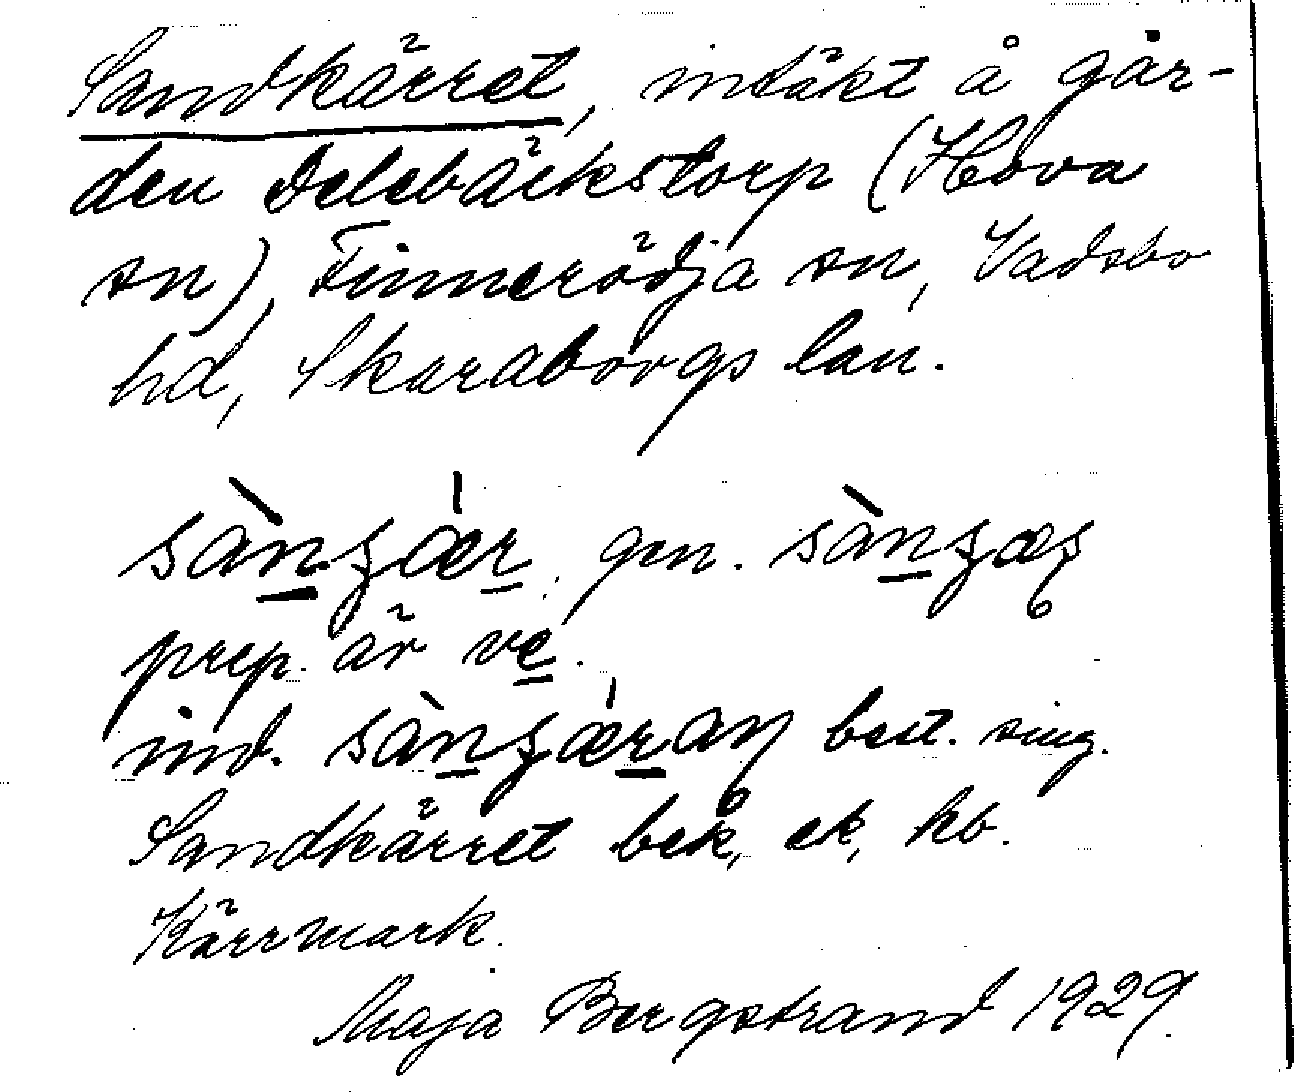 Sandkärret, intäkt å går-
den Delebäckstorp (Hova
sn), Finnerödja sn, Vadsbo
hd, Skaraborgs län.
gen.
prep. är ve.
ind. best. sing.
Sandkärret bek, ek, kb.
Kärrmark.
Maja Bergstrand 1929.